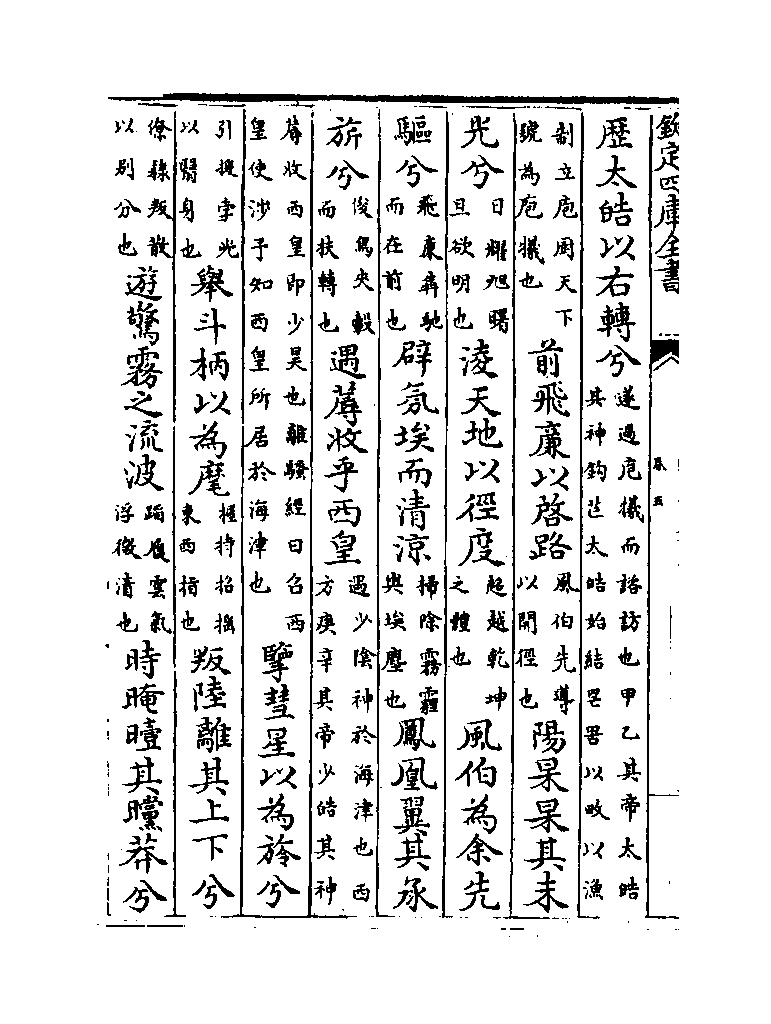 欽定四庫全書
卷五
歷太皓以右轉兮
遂過庖犧而諮訪也甲乙其帝太皓
其神鉤芒太皓始結罔罟以畋以漁
制立庖厨天下
號為庖犧也
前飛廉以啓路
風伯先導
以開徑也
陽杲杲其未
光兮
日耀旭曙
旦欲明也
淩天地以徑度
超越乾坤
之體也
風伯為余先
驅兮
飛廉奔馳
而在前也
辟氛埃而清涼
掃除霧霾
與埃塵也
鳳凰翼其承
旂兮
俊鳥夾轂
而扶轉也
遇蓐收乎西皇
遇少陰神於海津也西
方庚辛其帝少皓其神
蓐收西皇即少昊也離騷經曰召西
皇使涉予知西皇所居於海津也
擥彗星以為旍兮
引援孛光
以翳身也
舉斗柄以為麾
握持招搖
東西指也
叛陸離其上下兮
繚隸叛散
以别分也
遊驚霧之流波
蹈履雲氣
浮微清也
時晻曀其曭莽兮